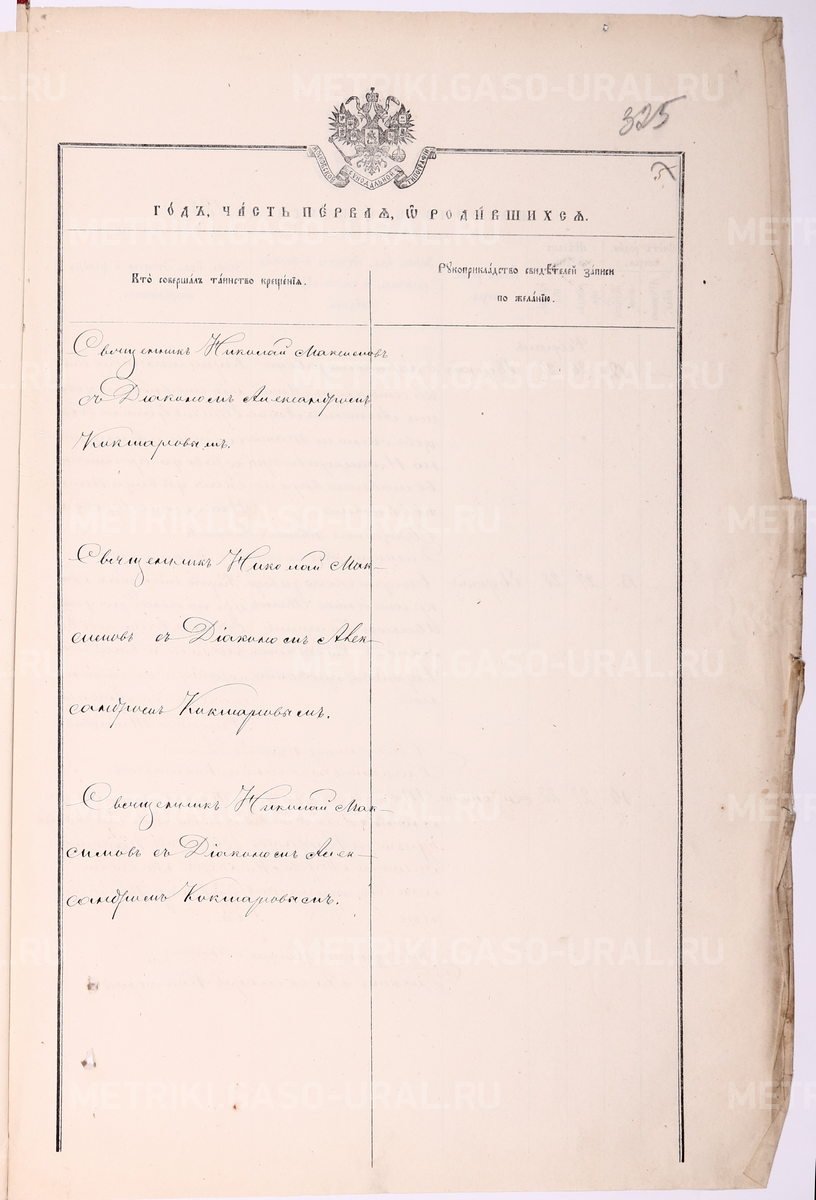 325
МОСКОВСКОЙ СѴНОДАЛЬНОЙ ТИПОГРАФІИ
ГО́ДЪ, ЧА́СТЬ ПЕ́РВАѦ, Ѿ РОДИ́ВШИХСѦ.
Кто̀ соверша́лъ та́инство креще́нїѧ.
Рꙋкоприкла́дство свидѣ́телей за́писи
по жела́нїю.
Священникъ Николай Максимовъ
съ Діакономъ Александромъ
Кокшаровымъ.
Священникъ Николай Мак-
симовъ съ Діакономъ Алек-
сандромъ Кокшаровымъ.
Священникъ Николай Мак-
симовъ съ Діакономъ Алек-
сандромъ Кокшаровымъ.
METRIKI.GASO-URAL.RU